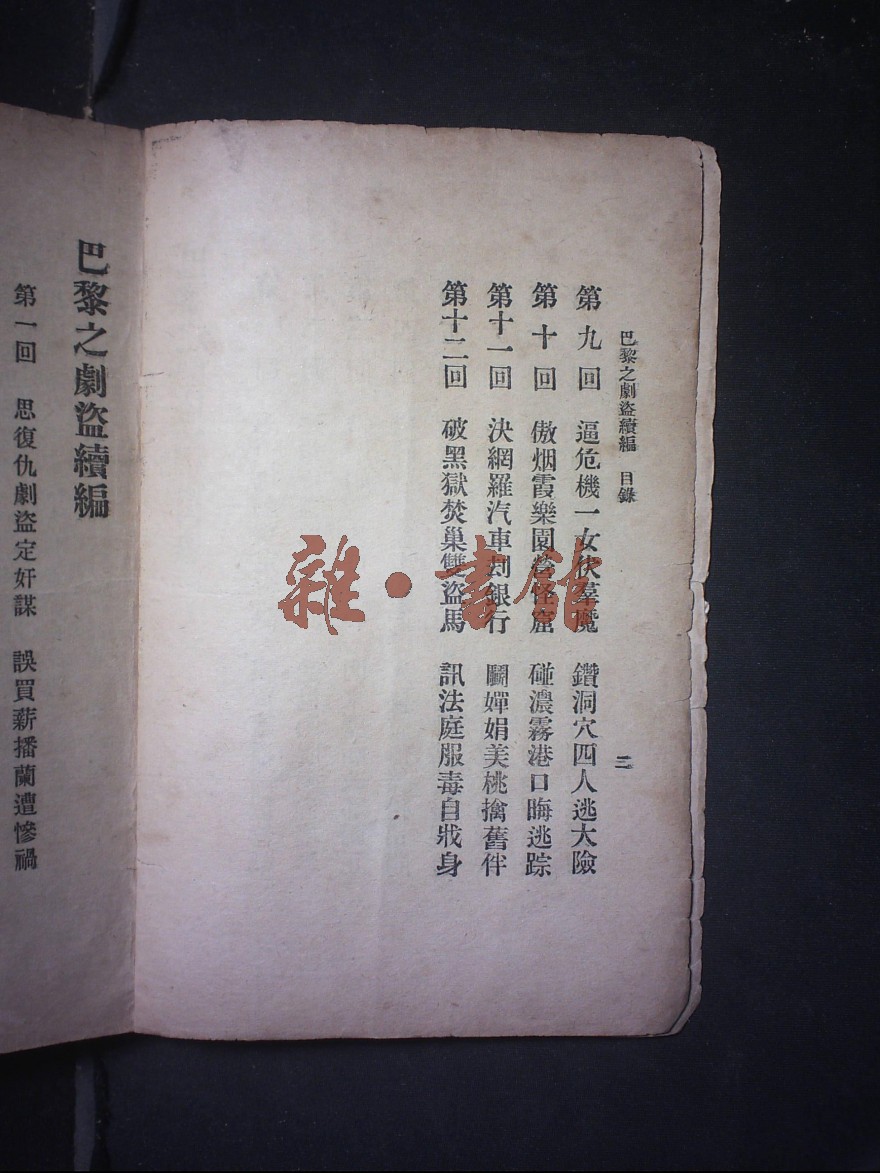 巴黎之劇盜續編　目錄
二
第九回　逼危機一女伏羣魔　鑽洞穴四人逃大險
第十回　傲烟霞樂園營怪窟　碰濃霧港口晦逃踪
第十一回　決網羅汽車劃銀行　鬭嬋娟美桃擒舊伴
第十二回　破黑獄焚巢雙盜馬　訊法庭服毒自戕身
巴黎之劇盜續編
第一回　思復仇劇盜定奸謀　誤買薪播蘭遭慘禍
雜·書館